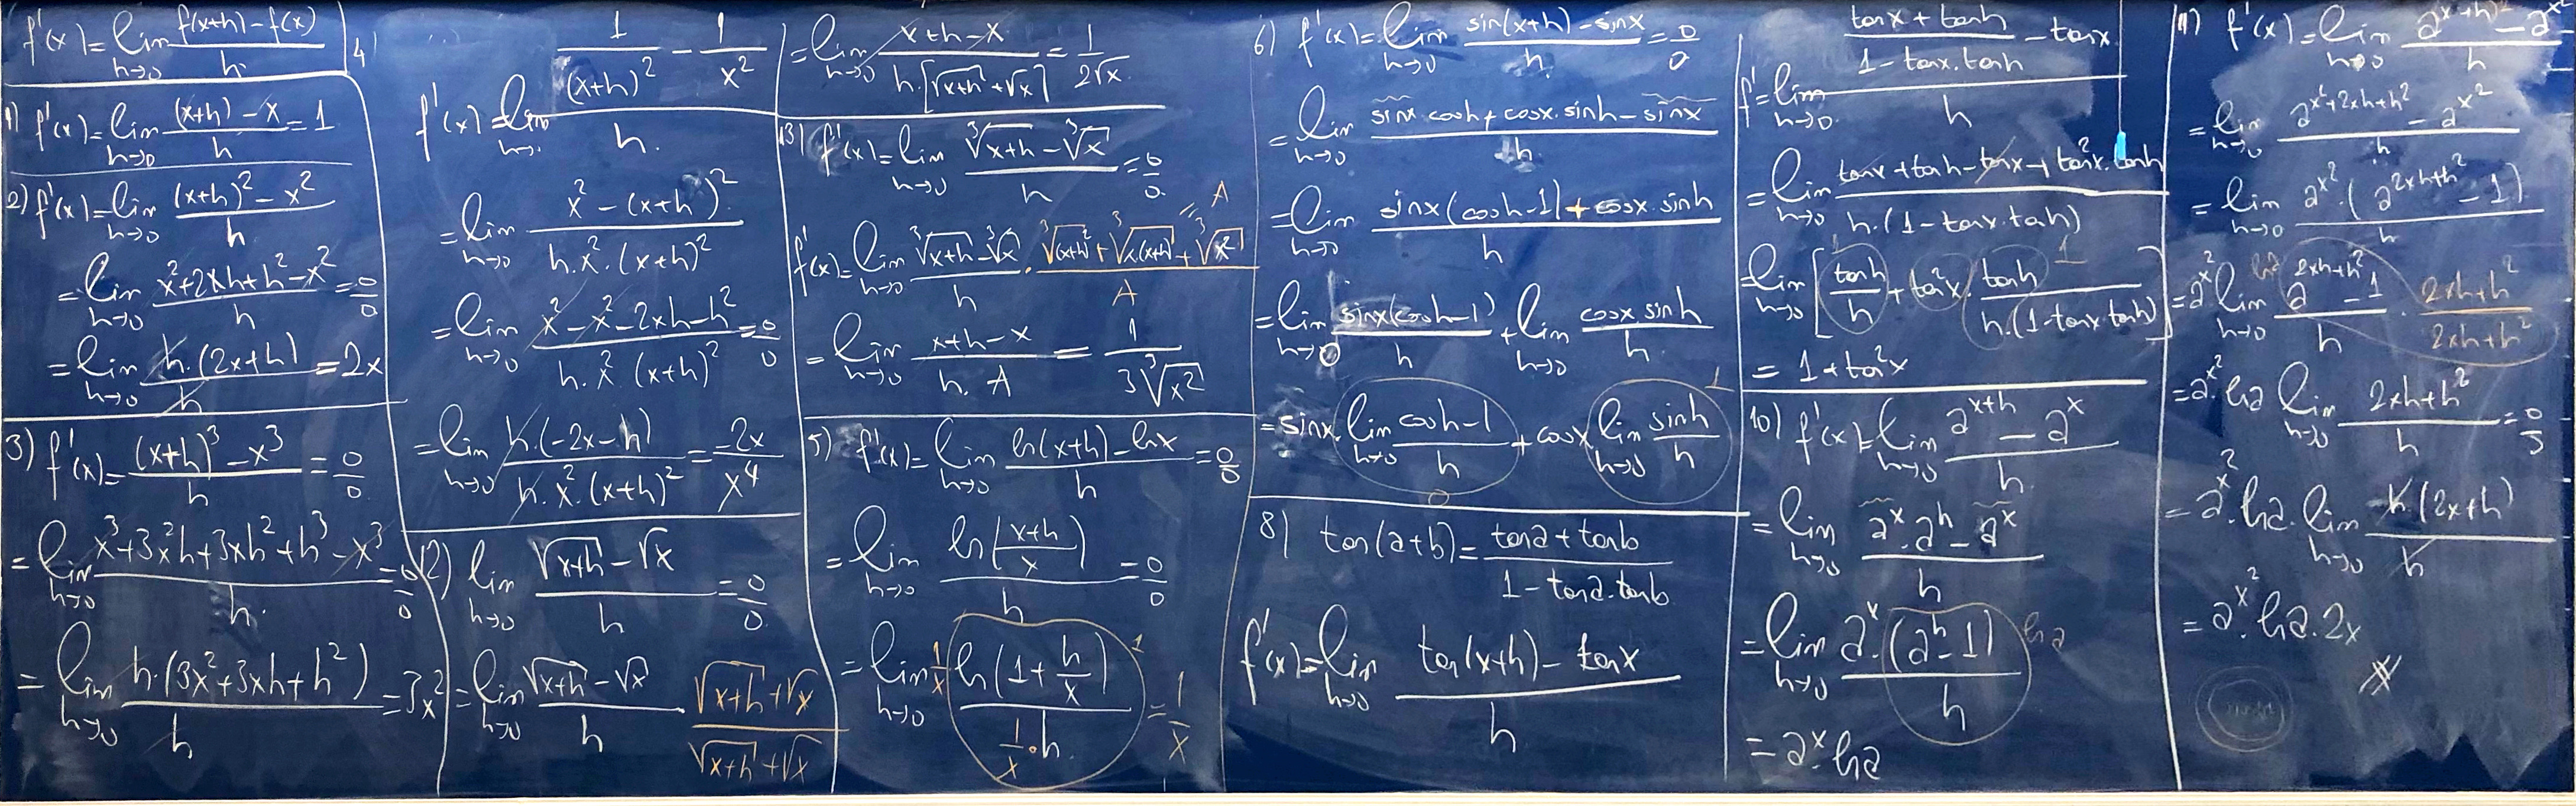 f'(x) = lim h→0 (f(x+h) - f(x))/h
1) f'(x) = lim h→0 ((x+h) - x)/h = 1
2) f'(x) = lim h→0 ((x+h)² - x²)/h
= lim h→0 (x² + 2xh + h² - x²)/h = 0/0
= lim h→0 (h·(2x+h))/h = 2x
3) f'(x) = ((x+h)³ - x³)/h = 0/0
= lim h→0 (x³ + 3x²h + 3xh² + h³ - x³)/h = 0/0
= lim h→0 (h·(3x² + 3xh + h²))/h = 3x²
4)
f'(x) = lim h→ (1/(x+h)² - 1/x²)/h
= lim h→0 (x² - (x+h)²)/(h·x²·(x+h)²)
= lim h→0 (x² - x² - 2xh - h²)/(h·x²·(x+h)²) = 0/0
= lim h→0 (h·(-2x-h))/(h·x²·(x+h)²) = -2x/x⁴
12) lim h→0 (√(x+h) - √x)/h = 0/0
= lim h→0 (√(x+h) - √x)/h · (√(x+h) + √x)/(√(x+h) + √x)
= lim h→0 (x+h-x)/(h·[√(x+h) + √x]) = 1/(2√x)
13) f'(x) = lim h→0 (∛(x+h) - ∛x)/h = 0/0
f'(x) = lim h→0 (∛(x+h) - ∛x)/h · (∛(x+h)² + ∛(x·(x+h)) + ∛x²)/A = A
= lim h→0 (x+h-x)/(h·A) = 1/(3∛x²)
5) f'(x) = lim h→0 (ln(x+h) - lnx)/h = 0/0
= lim h→0 ln((x+h)/x)/h = 0/0
= lim h→0 1/x ln(1 + h/x)/(1/x · h) 1 = 1/x
6) f'(x) = lim h→0 (sin(x+h) - sinx)/h = 0/0
= lim h→0 (sinx cosh + cosx·sinh - sinx)/h
= lim h→0 (sinx(cosh-1) + cosx·sinh)/h
= lim h→0 (sinx(cosh-1))/h + lim h→0 (cosx sinh)/h
= sinx·lim h→0 (cosh-1)/h + cosx lim h→0 sinh/h 1
0
8) tan(a+b) = (tana + tanb)/(1 - tana·tanb)
f'(x) = lim h→0 (tan(x+h) - tanx)/h
f' = lim h→0 ((tanx + tanh)/(1 - tanx·tanh) - tanx)/h
= lim h→0 (tanx + tanh - tanx + tan²x·tanh)/(h·(1 - tanx·tanh))
= lim h→0 [tanh/h + tan²x·tanh/(h·(1-tanx tanh))] 1 1
= 1 + tan²x
10) f'(x) = lim h→0 (a^(x+h) - a^x)/h
= lim h→0 (a^x·a^h - a^x)/h
= lim h→0 (a^x·(a^h - 1))/h lna
= a^x·lna
11) f'(x) = lim h→0 (a^(x+h)² - a^x²)/h
= lim h→0 (a^(x²+2xh+h²) - a^x²)/h
= lim h→0 (a^x²·(a^(2xh+h²) - 1))/h
= a^x² lim h→0 (a^(2xh+h²) - 1)/h · (2xh+h²)/(2xh+h²) lna
= a^x²·lna lim h→0 (2xh+h²)/h = 0/0
= a^x²·lna·lim h→0 (h·(2x+h))/h
= a^x²·lna·2x